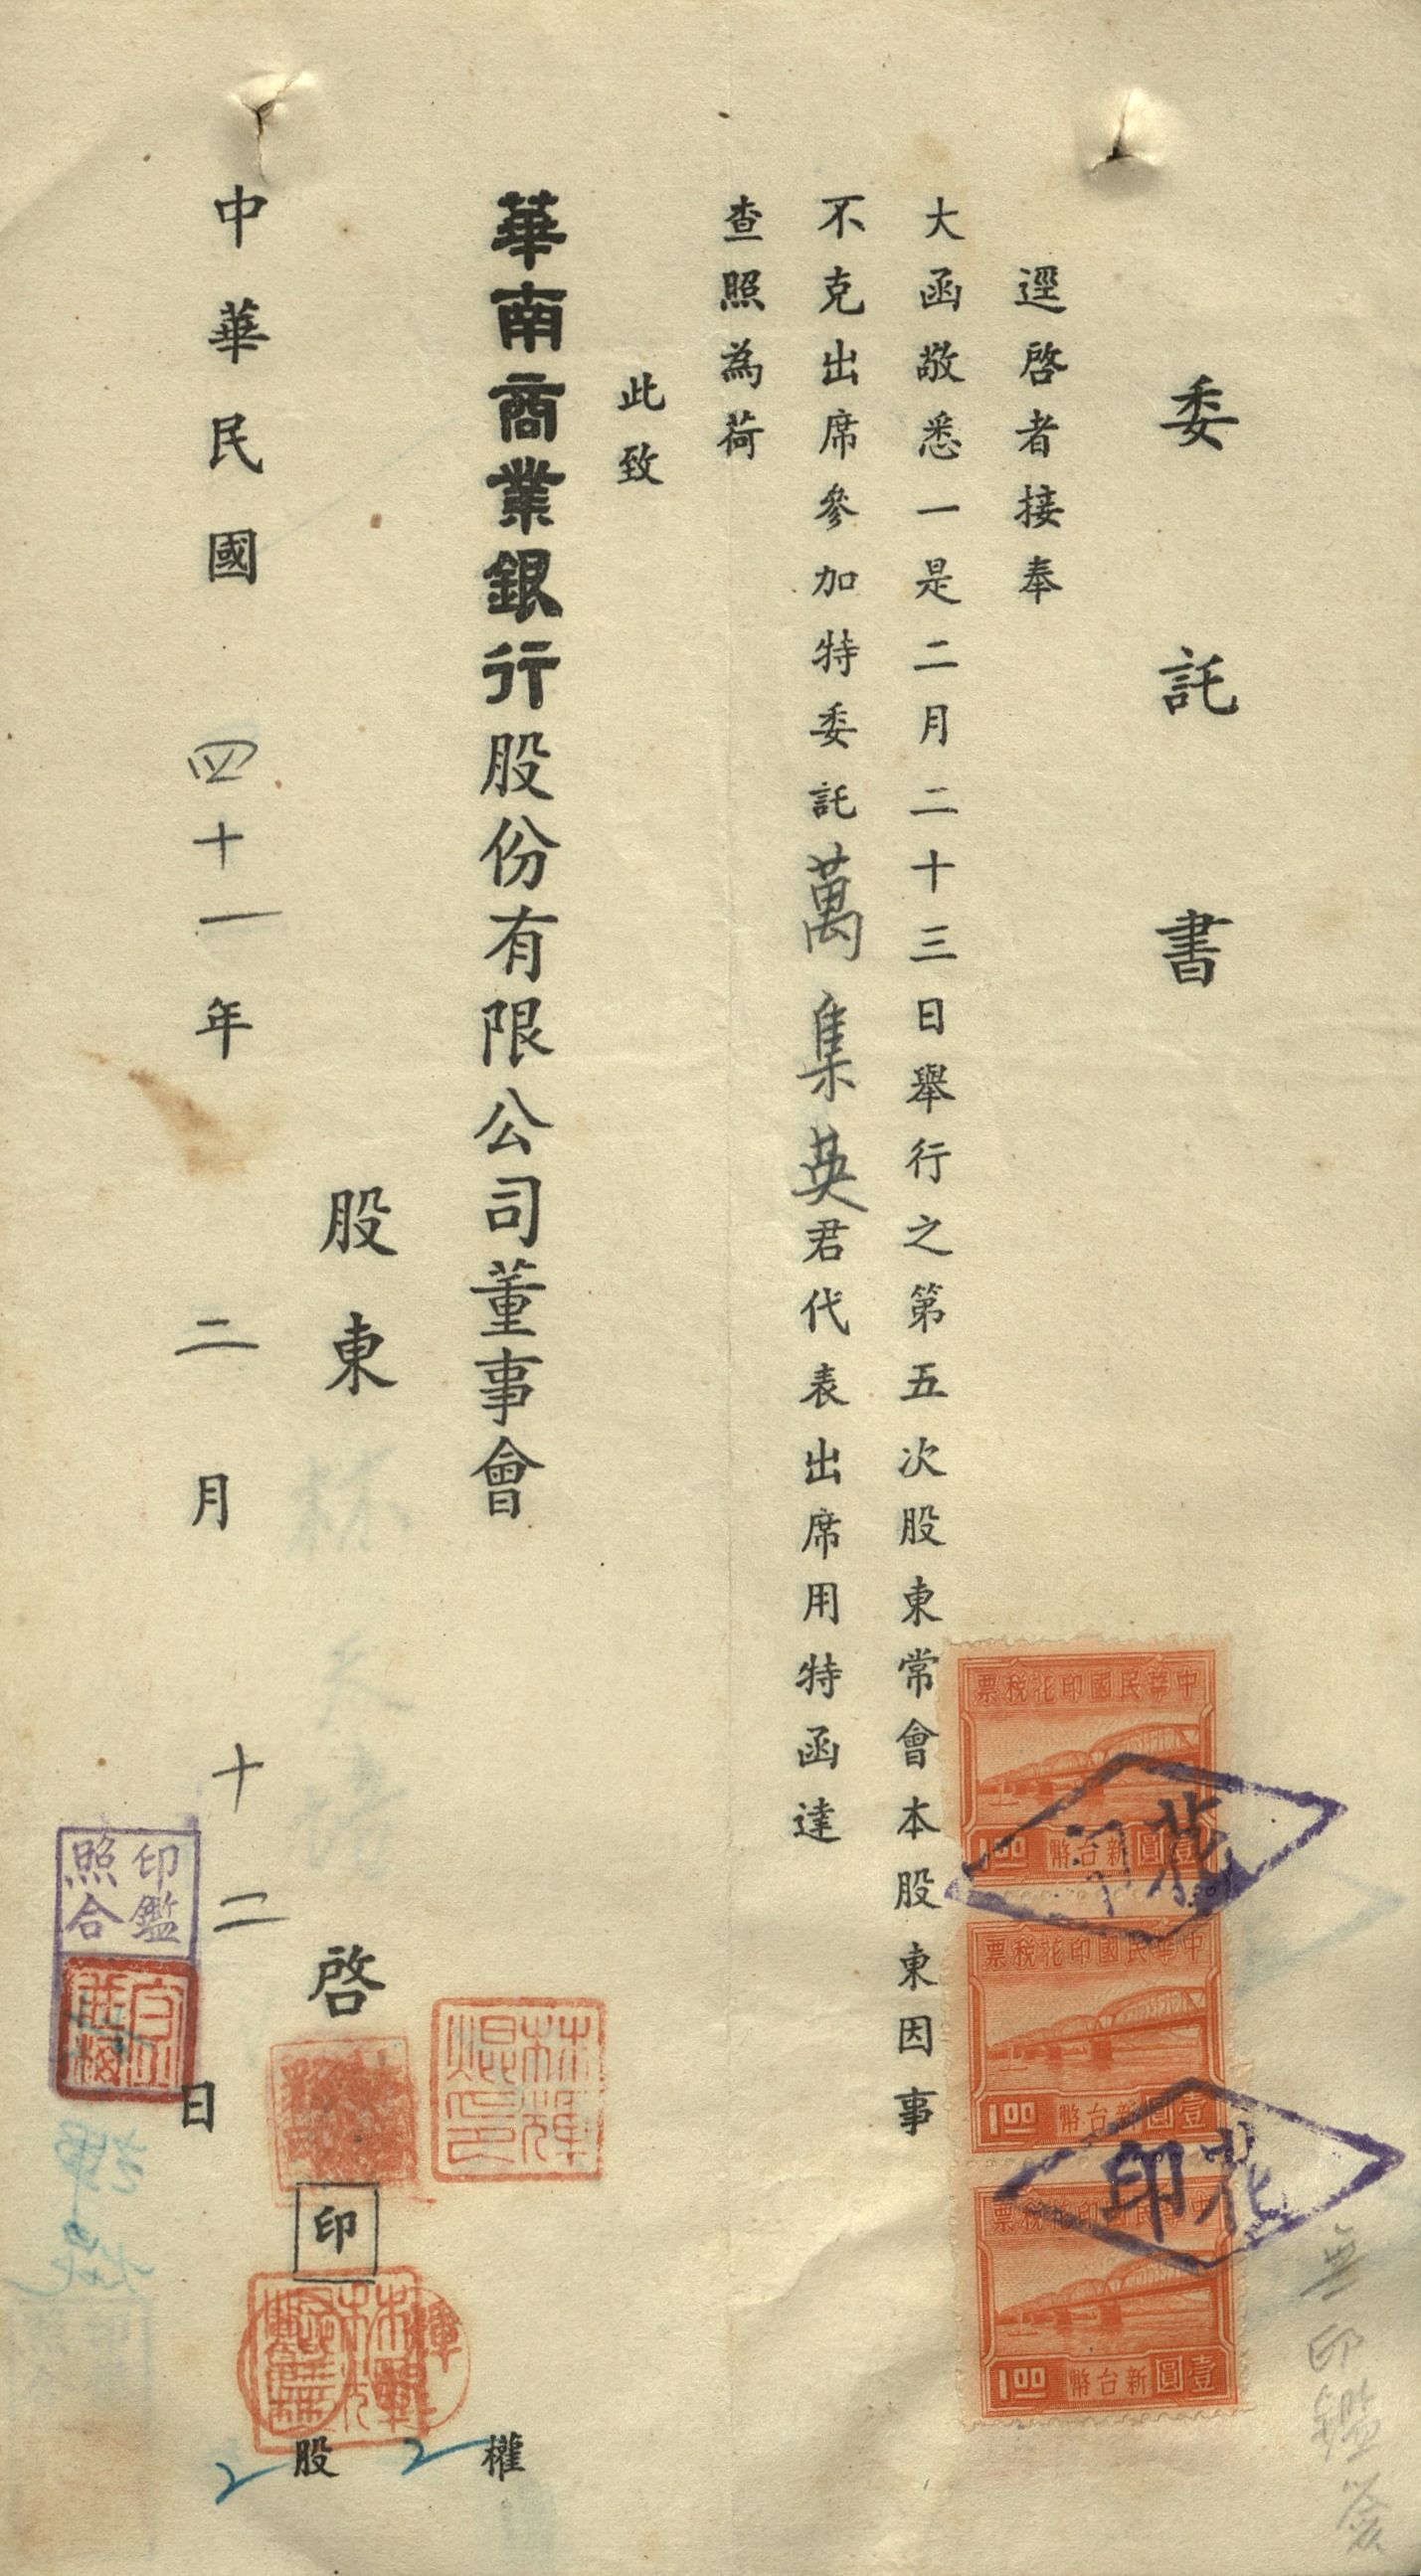 委託書
逕啓者接奉
大函敬悉一是二月二十三日舉行之第五次股東常會本股東因事
不克出席參加特委託萬集英君代表出席用特函達
查照為荷
此致
華南商業銀行股份有限公司董事會
股東 林天 啓 印
2股 2權
中華民國四十一年二月十二日
印鑑照合
票稅花印國民華中
1.00 幣台新圓壹
票稅花印國民華中
1.00 幣台新圓壹
票稅花印國民華中
1.00 幣台新圓壹
花印
花印
無印鑑簽
林輝焜印